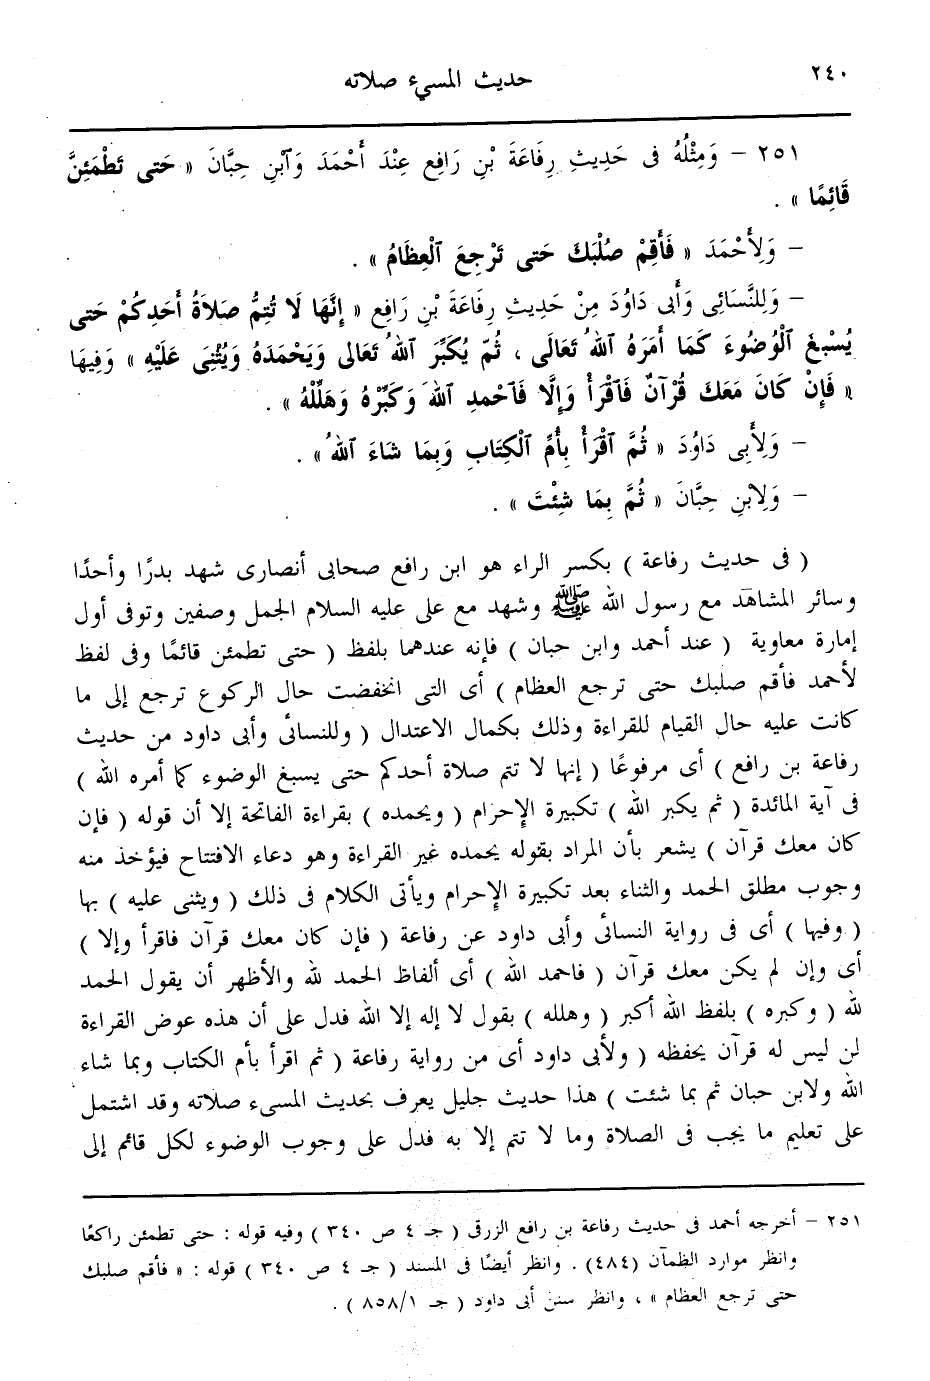 ٢٤٠
حديث المسيء صلاته
٢٥١ – وَمِثْلُهُ فى حَدِيثِ رِفَاعَةَ بْنِ رَافِعٍ عِنْدَ أَحْمَدَ وَٱبْنِ حِبَّانَ « حَتى تَطْمَئِنَّ
قَائِمًا » .
– وَلِأَحْمَدَ « فَأَقِمْ صُلْبَكَ حَتى تَرْجِعَ ٱلْعِظَامُ » .
– وَلِلنَّسَائِى وَأَبى دَاوُدَ مِنْ حَدِيثِ رِفَاعَةَ بْنِ رَافِعٍ « إِنَّهَا لَا تُتِمُّ صَلَاةُ أَحَدِكُمْ حَتى
يُسْبِغَ ٱلْوُضُوءَ كَمَا أَمَرَهُ ٱللهُ تَعَالَى ، ثُمّ يُكَبِّرَ ٱللهُ تَعَالى وَيَحْمَدَهُ وَيُثْنِىَ عَلَيْهِ » وَفِيهَا
« فَإِنْ كَانَ مَعَكَ قُرْآنٌ فَٱقْرَأْ وَإِلَّا فَٱحْمدِ ٱللهَ وَكَبِّرْهُ وَهَلِّلْهُ » .
– وَلِأَبِى دَاوُدَ « ثُمَّ ٱقْرَأْ بِأُمِّ ٱلْكِتَابِ وَبِمَا شَاءَ ٱللهُ » .
– وَلِابنِ حِبَّانَ « ثُمَّ بِمَا شِئْتَ » .
( فى حديث رفاعة ) بكسر الراء هو ابن رافع صحابى أنصارى شهد بدرًا وأحدًا
وسائر المشاهد مع رسول الله ﷺ وشهد مع على عليه السلام الجمل وصفين وتوفى أول
إمارة معاوية ( عند أحمد وابن حبان ) فإنه عندهما بلفظ ( حتى تطمئن قائمًا وفى لفظ
لأحمد فأقم صلبك حتى ترجع العظام ) أى التى انخفضت حال الركوع ترجع إلى ما
كانت عليه حال القيام للقراءة وذلك بكمال الاعتدال ( وللنسائى وأبى داود من حديث
رفاعة بن رافع ) أى مرفوعًا ( إنها لا تتم صلاة أحدكم حتى يسبغ الوضوء كما أمره الله )
فى آية المائدة ( ثم يكبر الله ) تكبيرة الإحرام ( ويحمده ) بقراءة الفاتحة إلا أن قوله ( فإن
كان معك قرآن ) يشعر بأن المراد بقوله يحمده غير القراءة وهو دعاء الافتتاح فيؤخذ منه
وجوب مطلق الحمد والثناء بعد تكبيرة الإحرام ويأتى الكلام فى ذلك ( ويثنى عليه ) بها
( وفيها ) أى فى رواية النسائى وأبى داود عن رفاعة ( فإن كان معك قرآن فاقرأ وإلا )
أى وإن لم يكن معك قرآن ( فاحمد الله ) أى ألفاظ الحمد لله والأظهر أن يقول الحمد
لله ( وكبره ) بلفظ الله أكبر ( وهلله ) بقول لا إله إلا الله فدل على أن هذه عوض القراءة
لمن ليس له قرآن يحفظه ( ولأبى داود أى من رواية رفاعة ( ثم اقرأ بأم الكتاب وبما شاء
الله ولابن حبان ثم بما شئت ) هذا حديث جليل يعرف بحديث المسىء صلاته وقد اشتمل
على تعليم ما يجب فى الصلاة وما لا تتم إلا به فدل على وجوب الوضوء لكل قائم إلى
٢٥١ – أخرجه أحمد فى حديث رفاعة بن رافع الزرقى ( جـ ٤ ص ٣٤٠ ) وفيه قوله : حتى تطمئن راكعًا
وانظر موارد الظمآن (٤٨٤) . وانظر أيضًا فى المسند ( جـ ٤ ص ٣٤٠ ) قوله : « فأقم صلبك
حتى ترجع العظام » ، وانظر سنن أبى داود ( جـ ٨٥٨/١ ) .